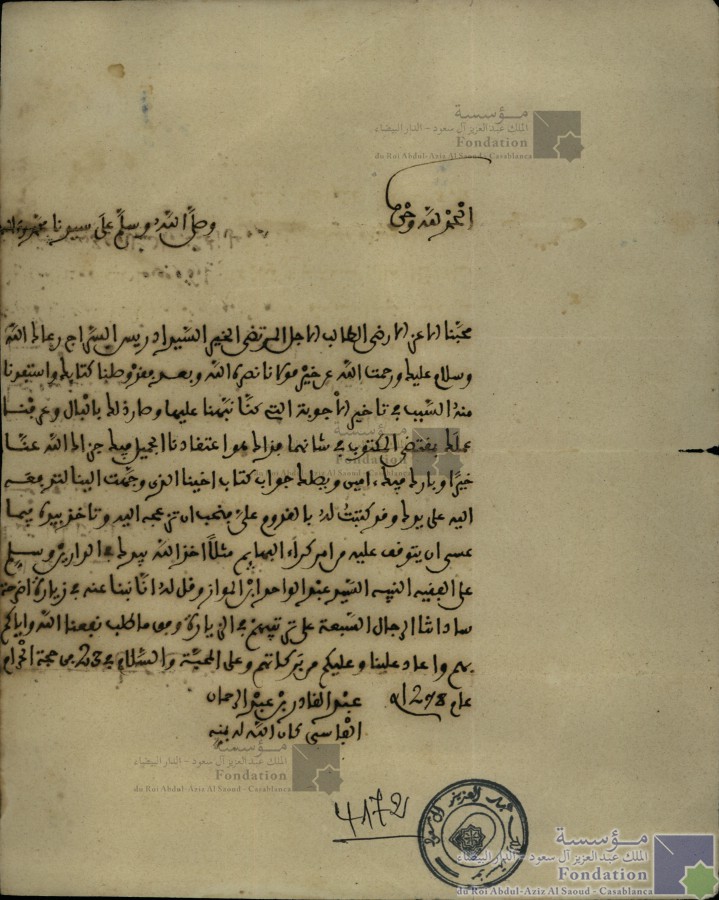 مؤسسة
الملك عبد العزيز آل سعود - الدار البيضاء
Fondation
du Roi Abdul-Aziz Al Saoud - Casablanca
الحمد لله وحده
وصلى الله وسلم على سيدنا محمد
محبنا الاعز الارضى الطالب الاجل المرتضى الخير السيد ادريس السراج رعاك الله
وسلام عليك ورحمت الله عن خير مولانا نصره الله وبعد فقد وصلنا كتابك واستفدنا
منه السبب في تاخير الاجوبة التي كنا نبهنا عليها وصار ذلك بالبال وعرفنا
عملك بمقتضى المكتوب في شانها فذاك هو اعتقادنا الجميل فيك جزاك الله عنا
خيرا وبارك فيك ءامين ويصلك جواب كتاب اخينا الذي وجهت الينا لتدفعه
اليه على يدك وقد كتبت له بالقدوم على
عسى ان يتوقف عليه من امر كراء البهايم مثلا اخذ الله بيدك في الدارين وسلم
على الفقيه النبيه السيد عبد الواحد ابن المواز وقل له انا نبنا عنه في زيارة
ساداتنا الرجال السبعة على الزيارة وفق ما طلب نفعنا الله واياكم
بهم واعاد علينا وعليكم من بركاتهم وعلى المحبة والسلام في 23 من حجة الحرام
عام 1278
عبد القادر بن عبد الرحمان
الفاسي كان الله له بمنه
مؤسسة
الملك عبد العزيز آل سعود - الدار البيضاء
Fondation
du Roi Abdul-Aziz Al Saoud - Casablanca
4172
عبد العزيز آل سعود
مؤسسة
الملك عبد العزيز آل سعود - الدار البيضاء
Fondation
du Roi Abdul-Aziz Al Saoud - Casablanca